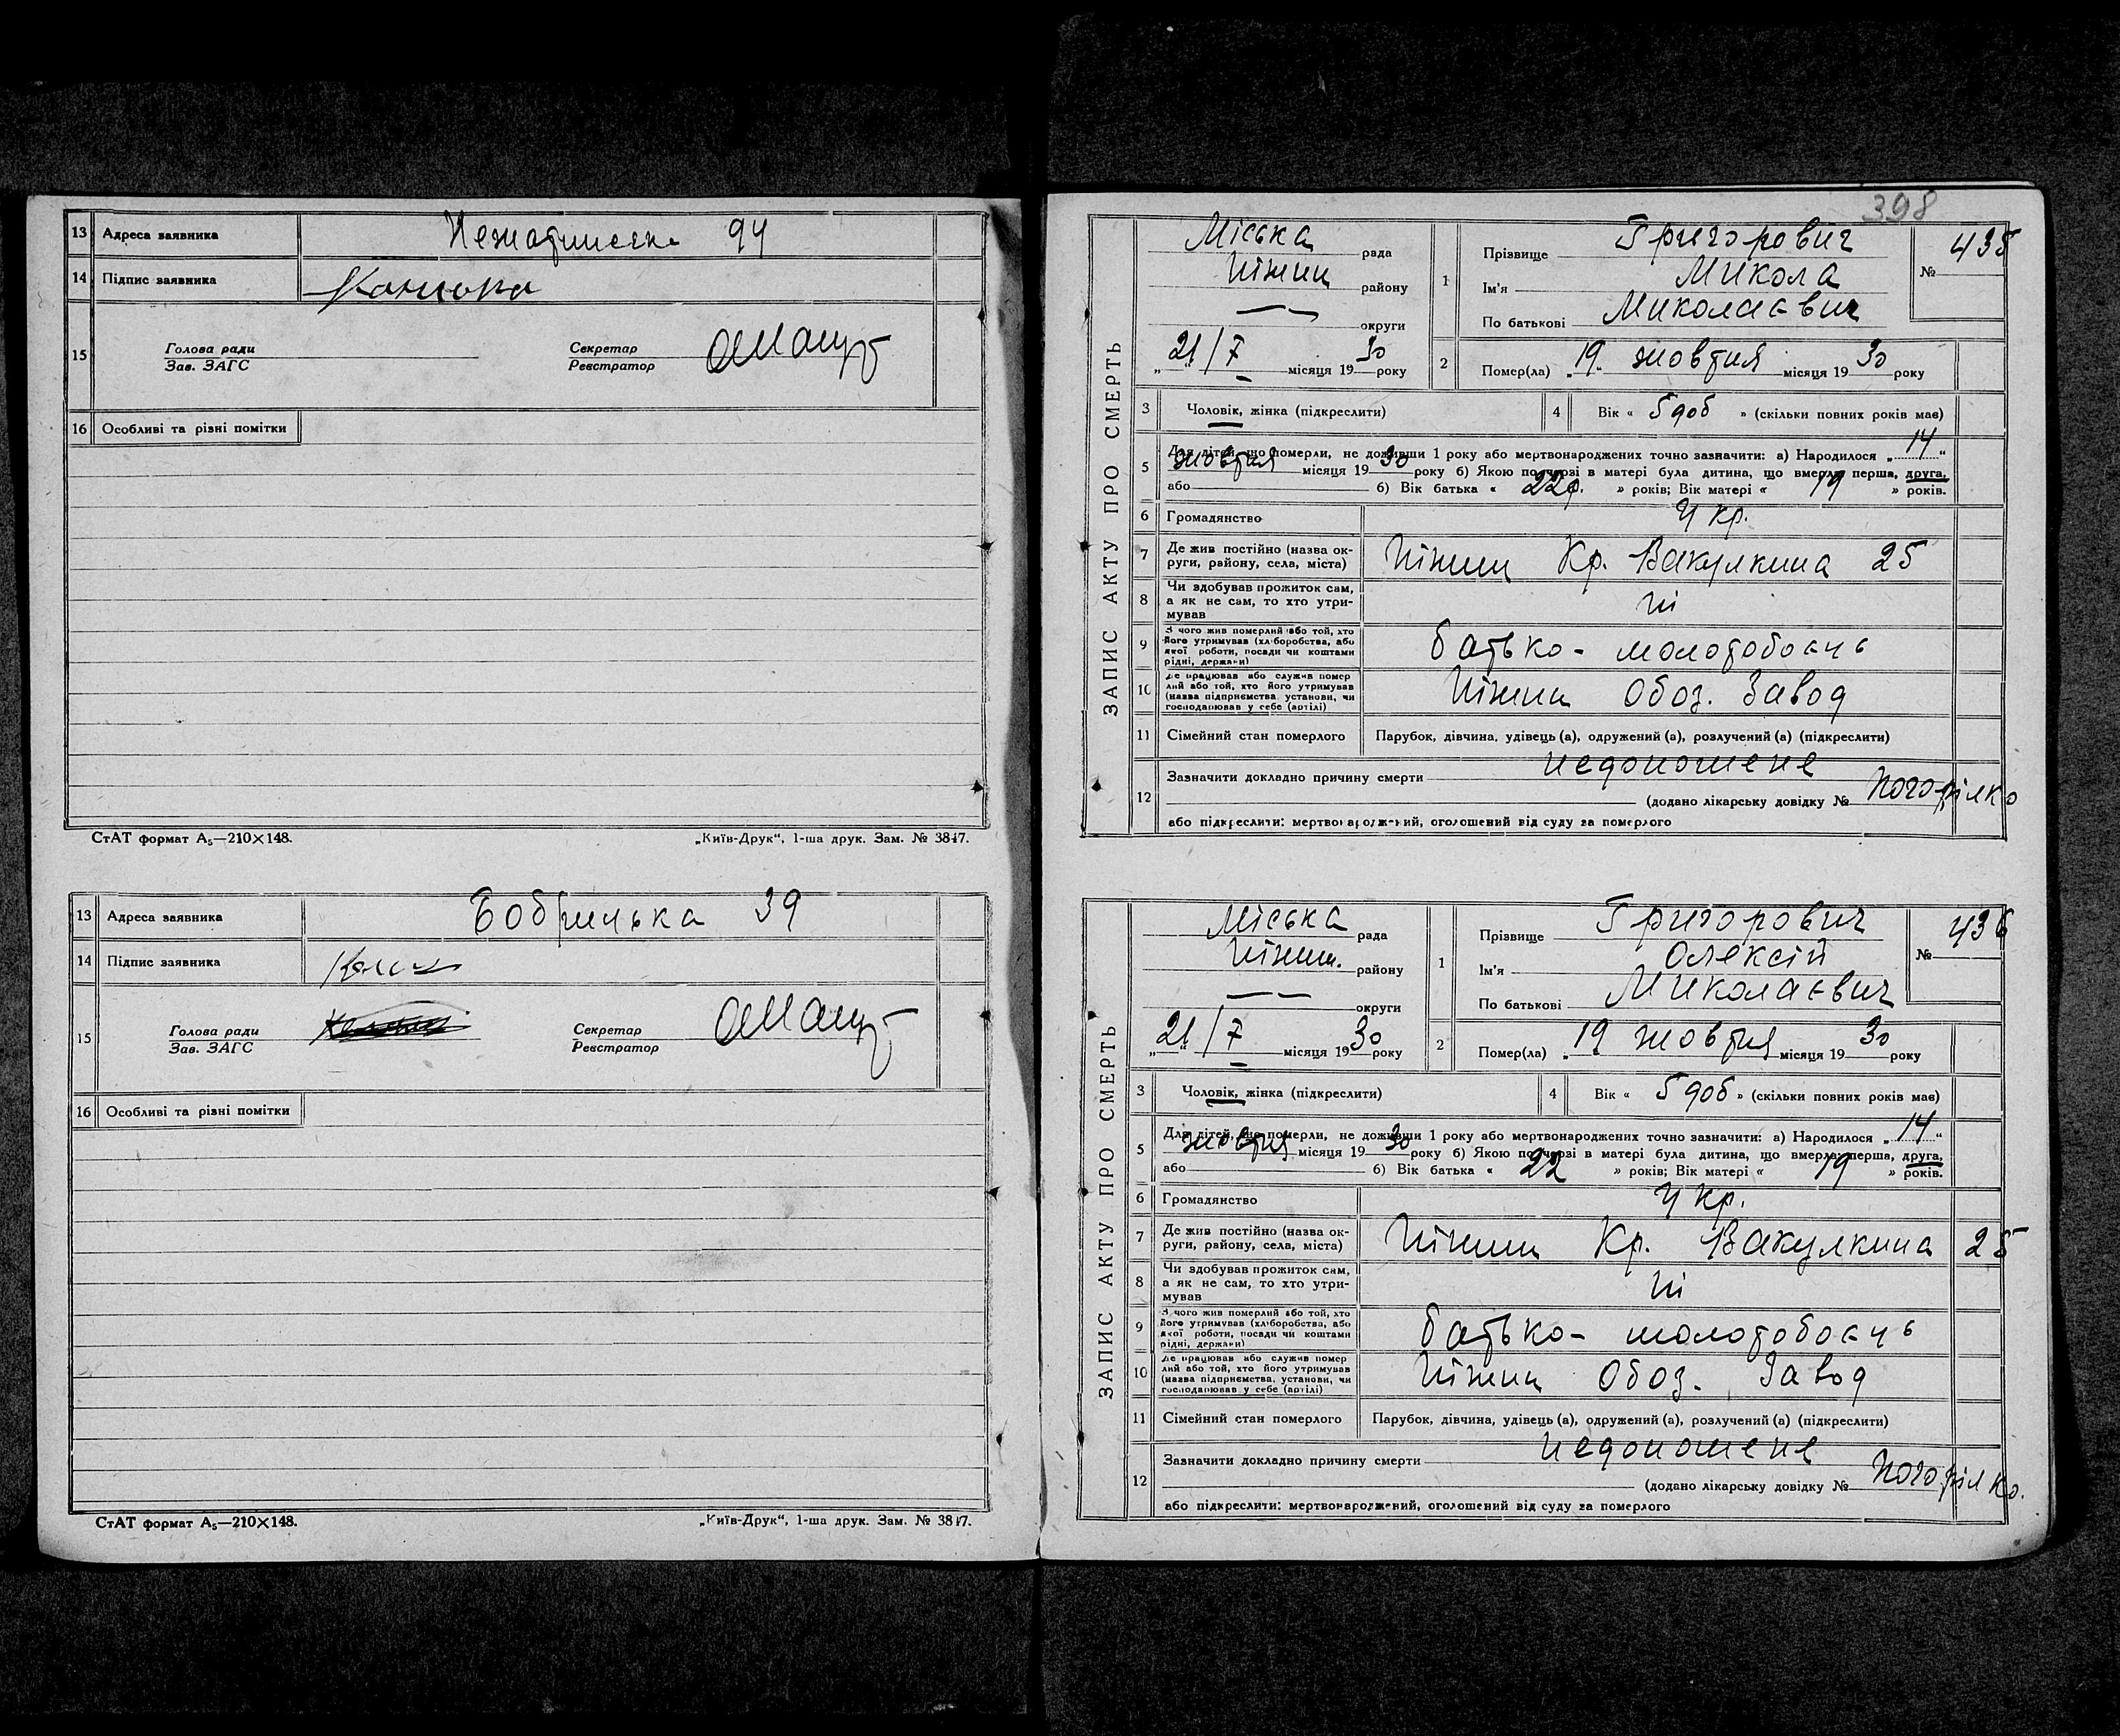 13 Адреса заявника 94
14 Підпис заявника
15 Голова ради
Зав. ЗАГС
Секретар
Реєстратор
16 Особливі та різні помітки
СтАТ формат А₅—210×148.
„Київ-Друк“, 1-ша друк. Зам. № 3847.
13 Адреса заявника Бобрицька 39
14 Підпис заявника
15 Голова ради
Зав. ЗАГС
Секретар
Реєстратор
16 Особливі та різні помітки
СтАТ формат А₅—210×148.
„Київ-Друк“, 1-ша друк. Зам. № 3847.
398
ЗАПИС АКТУ ПРО СМЕРТЬ
Міська рада
Ніжин району
— — округи
„21/7 місяця 1930 року
1 Прізвище Григорович
Ім'я Микола
По батькові Миколаєвич
№ 435
2 Помер(ла) „19“ жовтня місяця 1930 року
3 Чоловік, жінка (підкреслити)
4 Вік « 5 доб » (скільки повних років має)
5 Для дітей, що померли, не доживши 1 року або мертвонароджених точно зазначити: а) Народилося „14“
жовтня місяця 1930 року б) Якою по черзі в матері була дитина, що вмерла: перша, друга,
або б) Вік батька « 22р. » років; Вік матері « 19 » років.
6 Громадянство Укр.
7 Де жив постійно (назва ок-
руги, району, села, міста) Ніжин Кр. Вакулкина 25
8 Чи здобував прожиток сам,
а як не сам, то хто утри-
мував Ні
9 З чого жив померлий або той, хто
його утримував (хліборобства, або
якої роботи, посади чи коштами
рідні, держави) батько - молотобоєць
10 Де працював або служив помер
лий або той, хто його утримував
(назва підприємства, установи, чи
господарював у себе (артілі) Ніжин Обоз. Завод
11 Сімейний стан померлого Парубок, дівчина, удівець (а), одружений (а), розлучений (а) (підкреслити)
12 Зазначити докладно причину смерти недоношене
(додано лікарську довідку № Погорілко
або підкреслити: мертвонароджений, оголошений від суду за померлого
ЗАПИС АКТУ ПРО СМЕРТЬ
Міська рада
Ніжин. району
— — округи
„21/7 місяця 1930 року
1 Прізвище Григорович
Ім'я Олексій
По батькові Миколаєвич
№ 436
2 Помер(ла) „19 жовтня місяця 1930 року
3 Чоловік, жінка (підкреслити)
4 Вік « 5 доб » (скільки повних років має)
5 Для дітей, що померли, не доживши 1 року або мертвонароджених точно зазначити: а) Народилося „14“
жовтня місяця 1930 року б) Якою по черзі в матері була дитина, що вмерла: перша, друга,
або б) Вік батька « 22 » років; Вік матері « 19 » років.
6 Громадянство Укр.
7 Де жив постійно (назва ок-
руги, району, села, міста) Ніжин Кр. Вакулкина 25
8 Чи здобував прожиток сам,
а як не сам, то хто утри-
мував Ні
9 З чого жив померлий або той, хто
його утримував (хліборобства, або
якої роботи, посади чи коштами
рідні, держави) батько - молотобоєць
10 Де працював або служив помер
лий або той, хто його утримував
(назва підприємства, установи, чи
господарював у себе (артілі) Ніжин Обоз. Завод
11 Сімейний стан померлого Парубок, дівчина, удівець (а), одружений (а), розлучений (а) (підкреслити)
12 Зазначити докладно причину смерти недоношене
(додано лікарську довідку № Погорілко.
або підкреслити: мертвонароджений, оголошений від суду за померлого